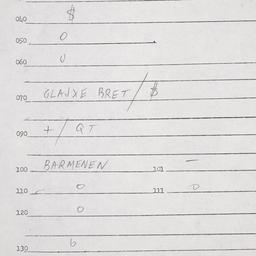 040 $
050 0
060 0
070 GLAJXE BRET / $
090 + / QT
100 BARMENEN 101 —
110 0 111 0
120 0
130 6